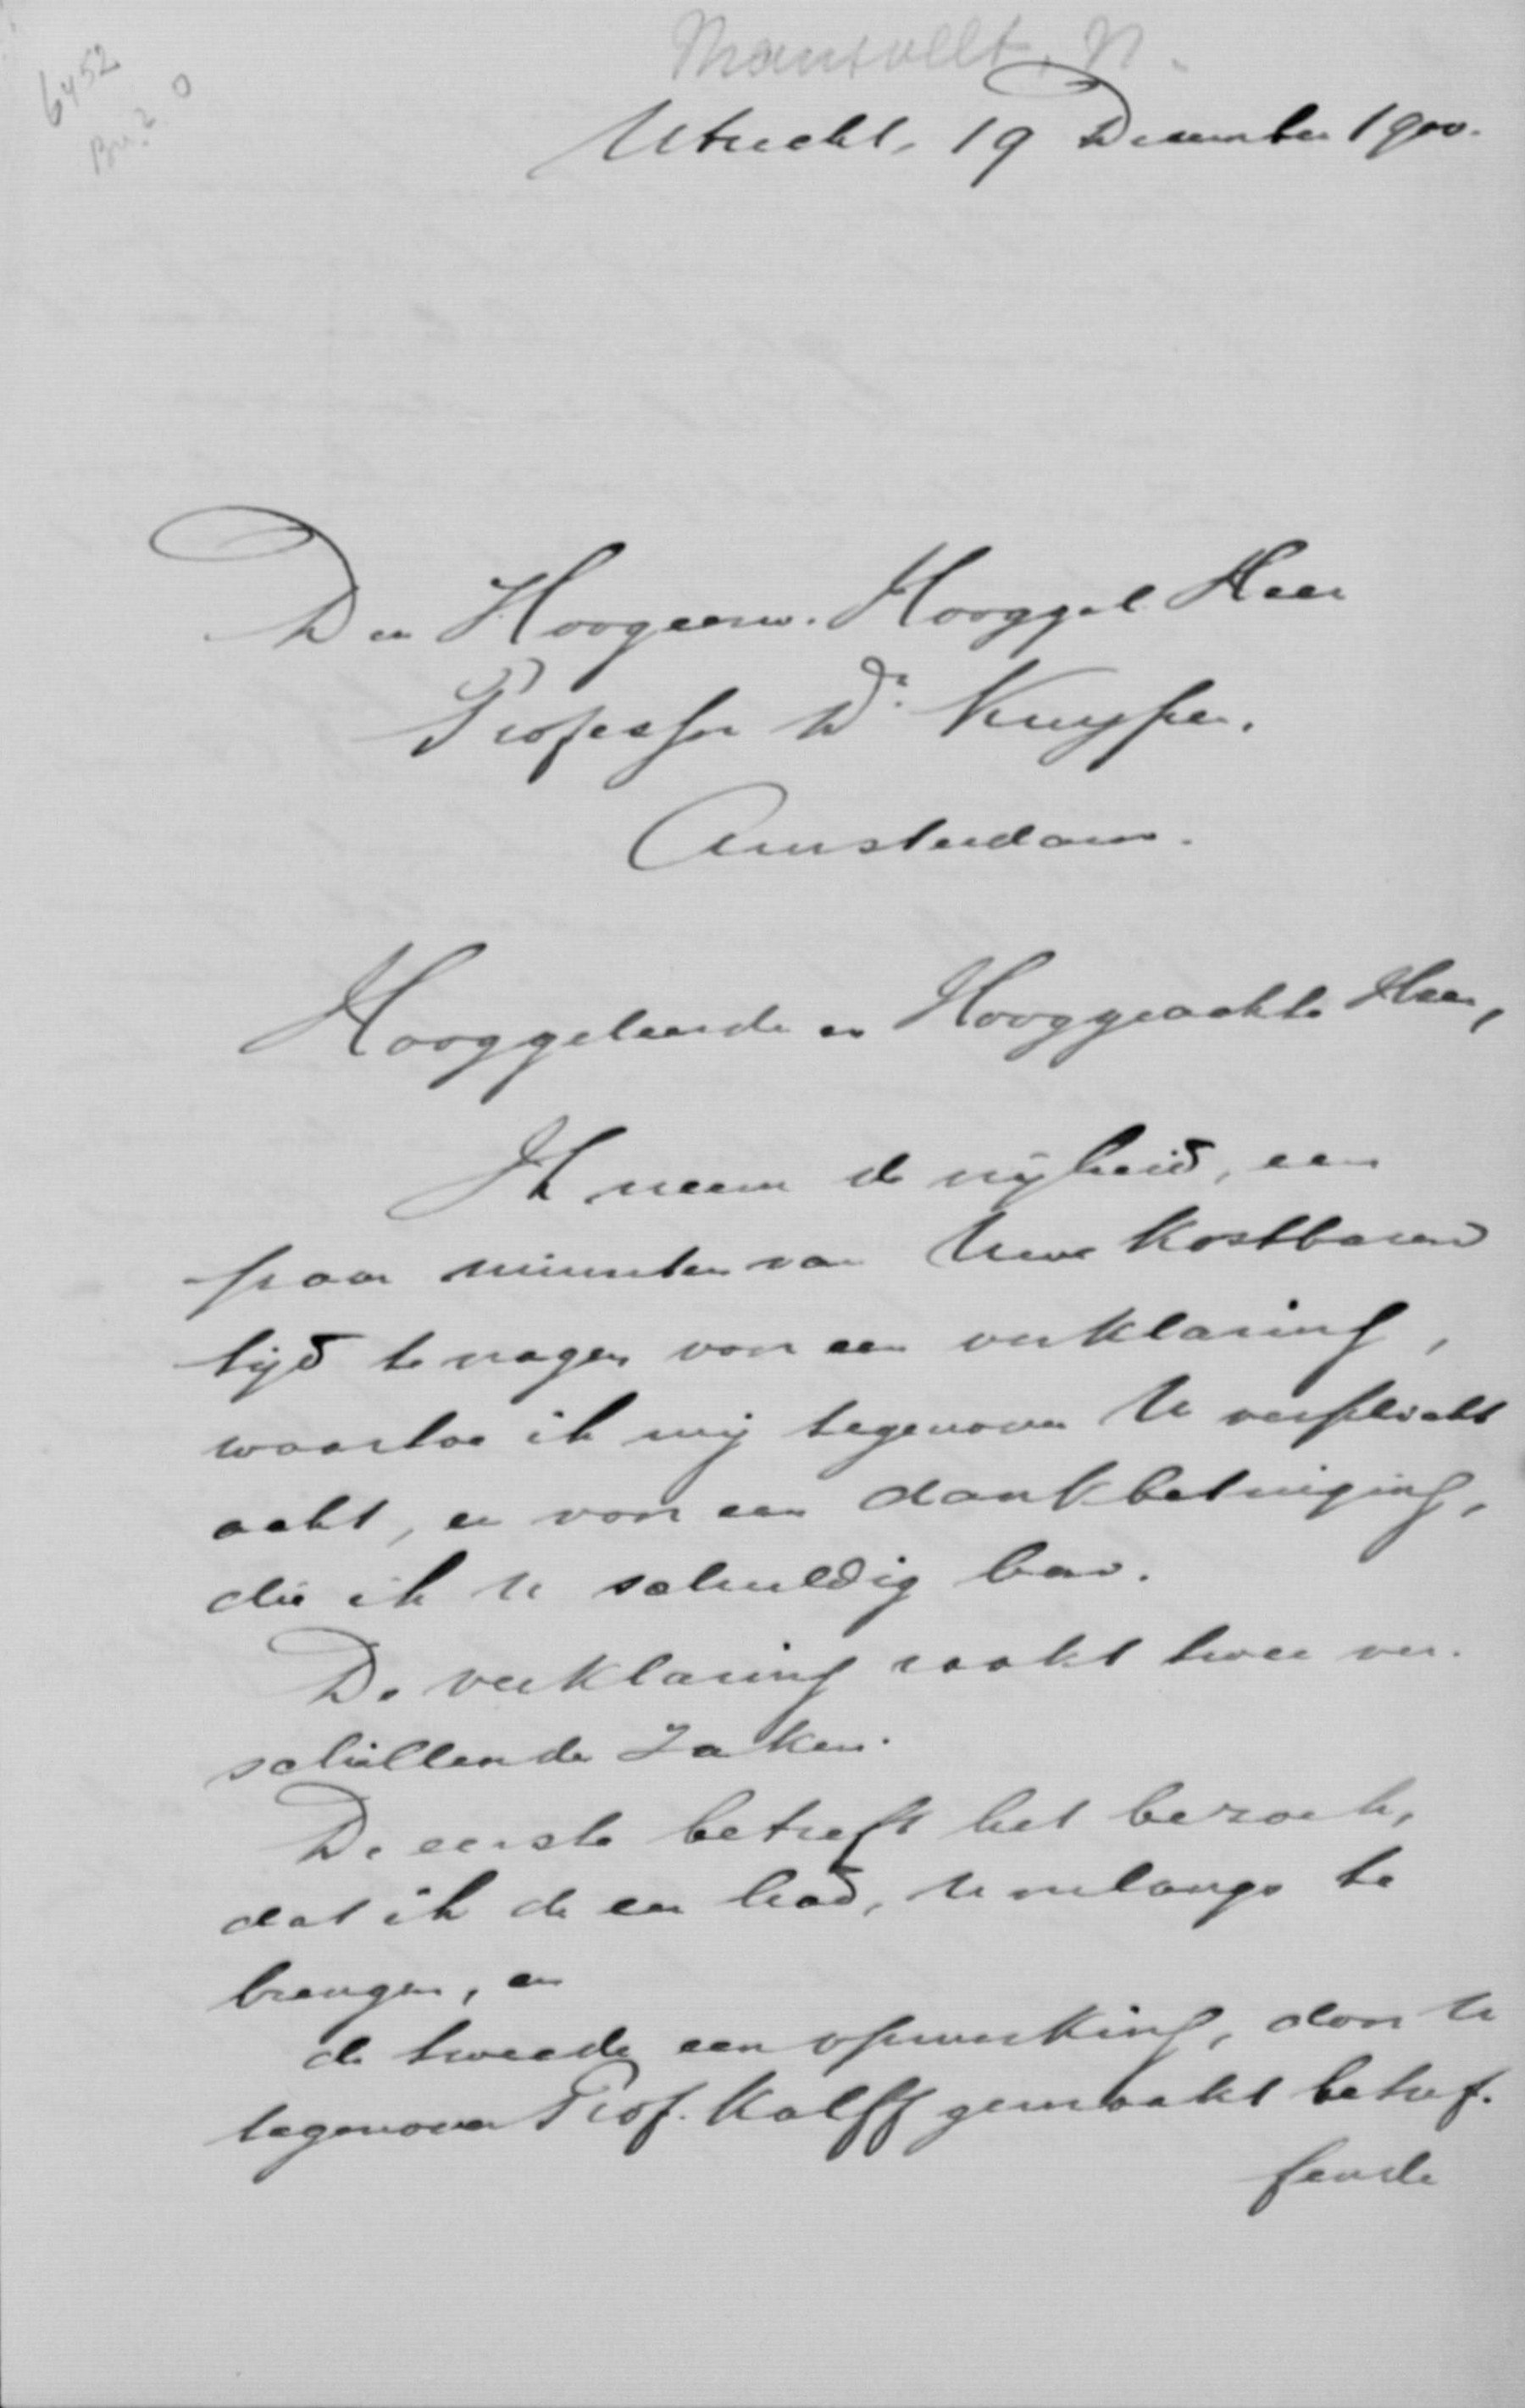 6452
Mansvelt, N.
Utrecht, 19 December 1900.
Den Hoogeerw. Hooggel. Heer
Professor Dr. Kuyper.
Amsterdam.
Hooggeleerde en Hooggeachte Heer,
Ik neem de vrijheid, een
paar minuten van Uwe kostbaren
tijd te vragen voor een verklaring,
waartoe ik mij tegenover U verplicht
acht, en voor een dankbetuiging,
die ik U schuldig ben.
De verklaring raakt twee ver-
schillende zaken.
De eerste betreft het bezoek,
dat ik de eer had, U onlangs te
brengen, en
de tweede een opmerking, door U
tegenover Prof. Kalff gemaakt betref-
fende